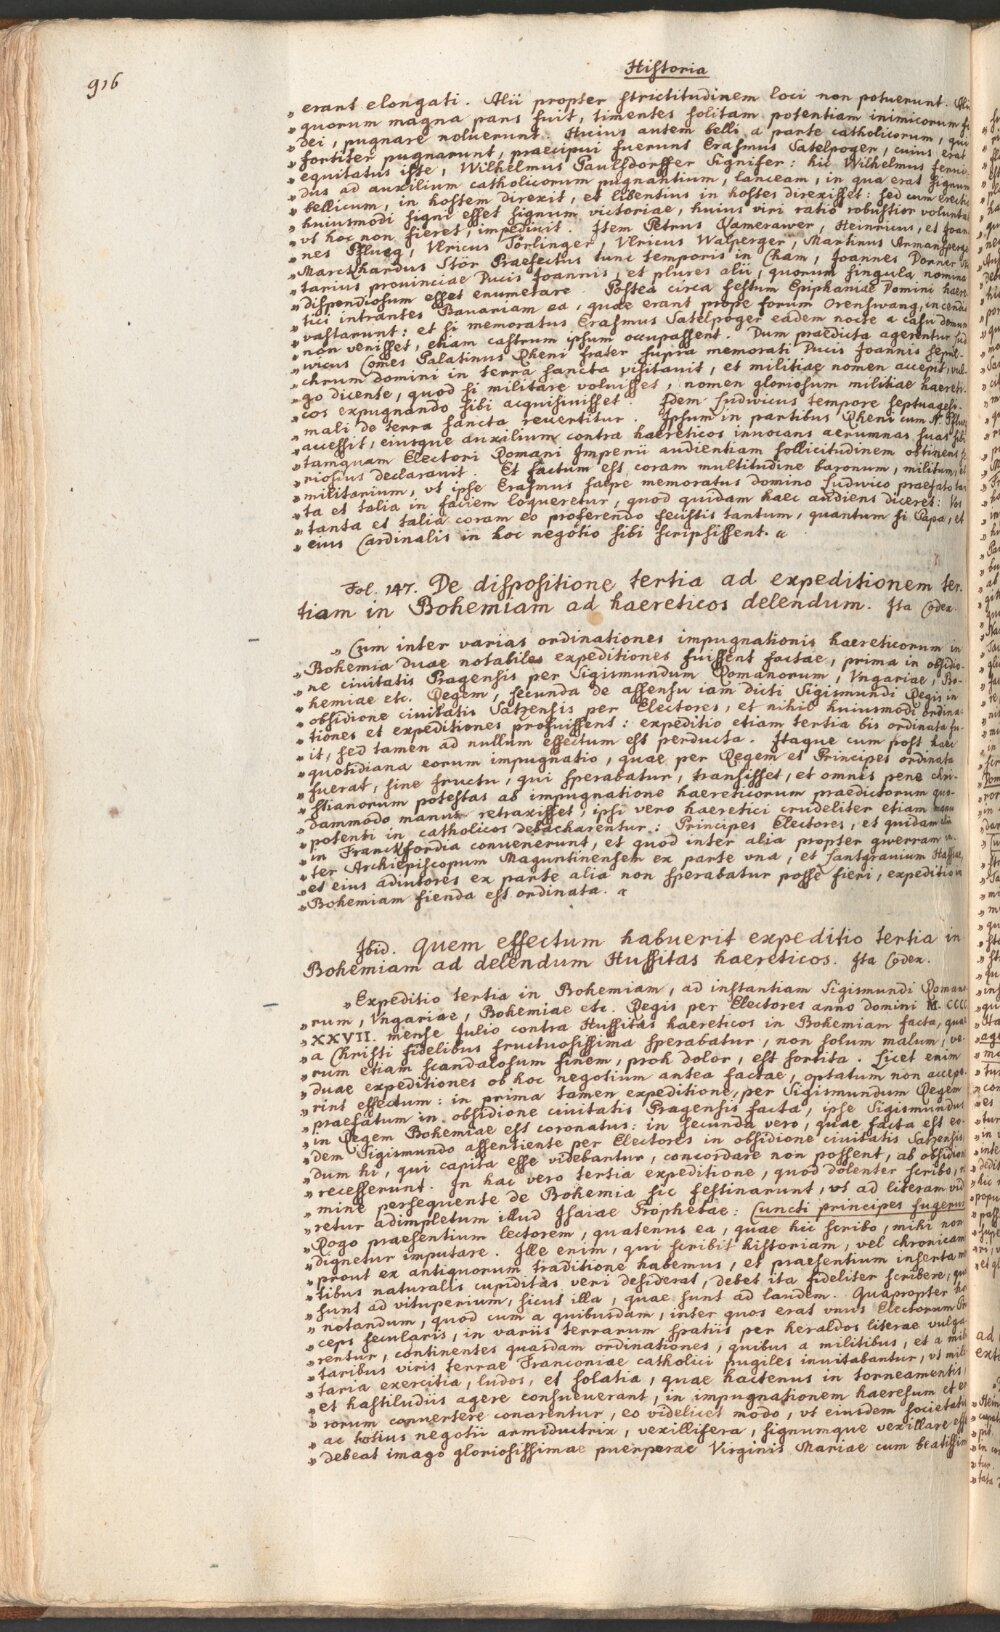 916
Historia
„ erant elongati. Alii propter strictitudinem loci non potuerunt.
„ quorum magna pars fuit, timentes solitam potentiam inimicorum
„ dei, pugnare noluerunt. Huius autem belli a parte catholicorum, qui
„ fortiter pugnarunt, praecipui fuerunt Erasmus Satelpoger, cuius erat
„ equitatus iste, Wilhelmus Paulstorffer Signifer: hic Wilhelmus
„ dus ad auxilium catholicorum pugnantium, lanceam, in qua erat signum
„ bellicum, in hostem direxit, et libentius in hostes direxisset. sed cum
„ huiusmodi signi esset signum victoriae, huius viri ratio robustior
„ vt hoc non fieret, impediuit. Item Petrus Camerawer, Heinricus, et Joan-
„ nes Pflueg, Vlricus Törlinger, Vlricus Walperger, Martinus
„ Marckhardus Stör Praefectus tunc temporis in Cham, Joannes Dorner
„ tarius prouinciae Ducis Joannis, et plures alii, quorum singula nomina
„ dispendiosum esset enumerare. Postea circa festum Epiphaniae Domini haere-
„ tici intrantes Bauariam ea, quae erant prope forum Orenswang, incendio
„ vastarunt: et si memoratus Erasmus Satelpoger eadem nocte a casu domum
„ non venisset, etiam castrum ipsum occupassent. Dum praedicta agerentur,
„ uicus Comes Palatinus Rheni frater supra memorati Ducis Joannis sepul-
„ chrum domini in terra sancta visitauit, et militiae nomen accepit, vul-
„ go dicente, quod si militare voluisset, nomen gloriosum militiae haereti-
„ cos expugnando sibi acquisiuisset. Idem Ludwicus tempore septuages-
„ mali de terra sancta reuertitur. Ipsum in partibus Rheni cum
„ accessit, eiusque auxilium contra haereticos innocans aerumnas suas sibi
„ tamquam Electori Romani Imperii audientiam sollicitudinem
„ riosius declarauit. Et factum est coram multitudine baronum, militum, et
„ militarium, vt ipse Erasmus saepe memoratus domino Ludwico praefato
„ ta et talia in faciem loqueretur, quod quidam haec audiens diceret: Vos
„ tanta et talia coram eo proferendo fecistis tantum, quantum si Papa, et
„ eius Cardinalis in hoc negotio sibi scripsissent. «
Fol. 147. De dispositione tertia ad expeditionem ter-
tiam in Bohemiam ad haereticos delendum. Ita Codex.
„ Cum inter varias ordinationes impugnationis haereticorum in
„ Bohemia duae notabiles expeditiones fuissent factae, prima in obsidio-
„ ne ciuitatis Pragensis per Sigismundum Romanorum, Vngariae, Bo-
„ hemiae etc. Regem, secunda de assensu iam dicti Sigismundi Regis in
„ obsidione ciuitatis Satzensis per Electores, et nihil huiusmodi ordina-
„ tiones et expeditiones profuissent: expeditio etiam tertia bis ordinata fu-
„ it, sed tamen ad nullum effectum est perducta. Itaque cum post haec
„ quotidiana eorum impugnatio, quae per Regem et Principes ordinata
„ fuerat, sine fructu, qui sperabatur, transisset, et omnis pene chri-
„ stianorum potestas ab impugnatione haereticorum praedictorum quo-
„ dammodo manus retraxisset, ipsi vero haeretici crudeliter etiam manu
„ potenti in catholicos debacharentur: Principes Electores, et quidam alii
„ in Franckfordia conuenerunt, et quod inter alia propter gwerram in-
„ ter Archiepiscopum Maguntinensem ex parte vna, et Lantgrauium Hassiae,
„ et eius adiutores ex parte alia non sperabatur posse fieri, expeditio in
„ Bohemiam fienda est ordinata. «
Ibid. Quem effectum habuerit expeditio tertia in
Bohemiam ad delendum Hussitas haereticos. Ita Codex.
„ Expeditio tertia in Bohemiam, ad instantiam Sigismundi Romano-
„ rum, Vngariae, Bohemiae etc. Regis per Electores anno domini M. CCCC.
„ XXVII. mense Julio contra Hussitas haereticos in Bohemiam facta, quae
„ a Christi fidelibus fructuosissima sperabatur, non solum malum, ve-
„ rum etiam scandalosum finem, proh dolor, est sortita. Licet enim
„ duae expeditiones ob hoc negotium antea factae, optatum non accepe-
„ rint effectum: in prima tamen expeditione, per Sigismundum Regem
„ praefatum in obsidione ciuitatis Pragensis facta, ipse Sigismundus
„ in Regem Bohemiae est coronatus: in secunda vero, quae facta est eo-
„ dem Sigismundo assentiente per Electores in obsidione ciuitatis Satzensis,
„ dum hi, qui capita esse videbantur, concordare non possent, ab obsidione
„ recesserunt. In hac vero tertia expeditione, quod dolenter scribo,
„ mine persequente de Bohemia sic festinarunt, vt ad literam vide-
„ retur adimpletum illud Isaiae Prophetae: Cuncti principes fugerunt
„ Rogo praesentium lectorem, quatenus ea, quae hic scribo, mihi non
„ dignetur imputare. Ille enim, qui scribit historiam, vel chronicam
„ prout ex antiquorum traditione habemus, et praesentium inserta
„ tibus naturalis cupiditas veri desiderat, debet ita fideliter scribere,
„ sunt ad vituperium, sicut illa, quae sunt ad laudem. Quapropter
„ notandum, quod cum a quibusdam, inter quos erat vnus Electorum
„ ceps secularis, in variis terrarum spatiis per heraldos literae vulga-
„ rentur, continentes quasdam ordinationes, quibus a militibus, et a mili-
„ taribus viris terrae Franconiae catholici pugiles inuitabantur, vt mili-
„ taria exercitia, ludos, et solatia, quae hactenus in torneamentis,
„ et hastiludiis agere consueuerant, in impugnationem haeresum et
„ rorum conuertere conarentur, eo videlicet modo, vt eiusdem societatis
„ ac totius negotii armiductrix, vexillifera, signumque vexillare esse
„ debeat imago gloriosissimae puerperae Virginis Mariae cum